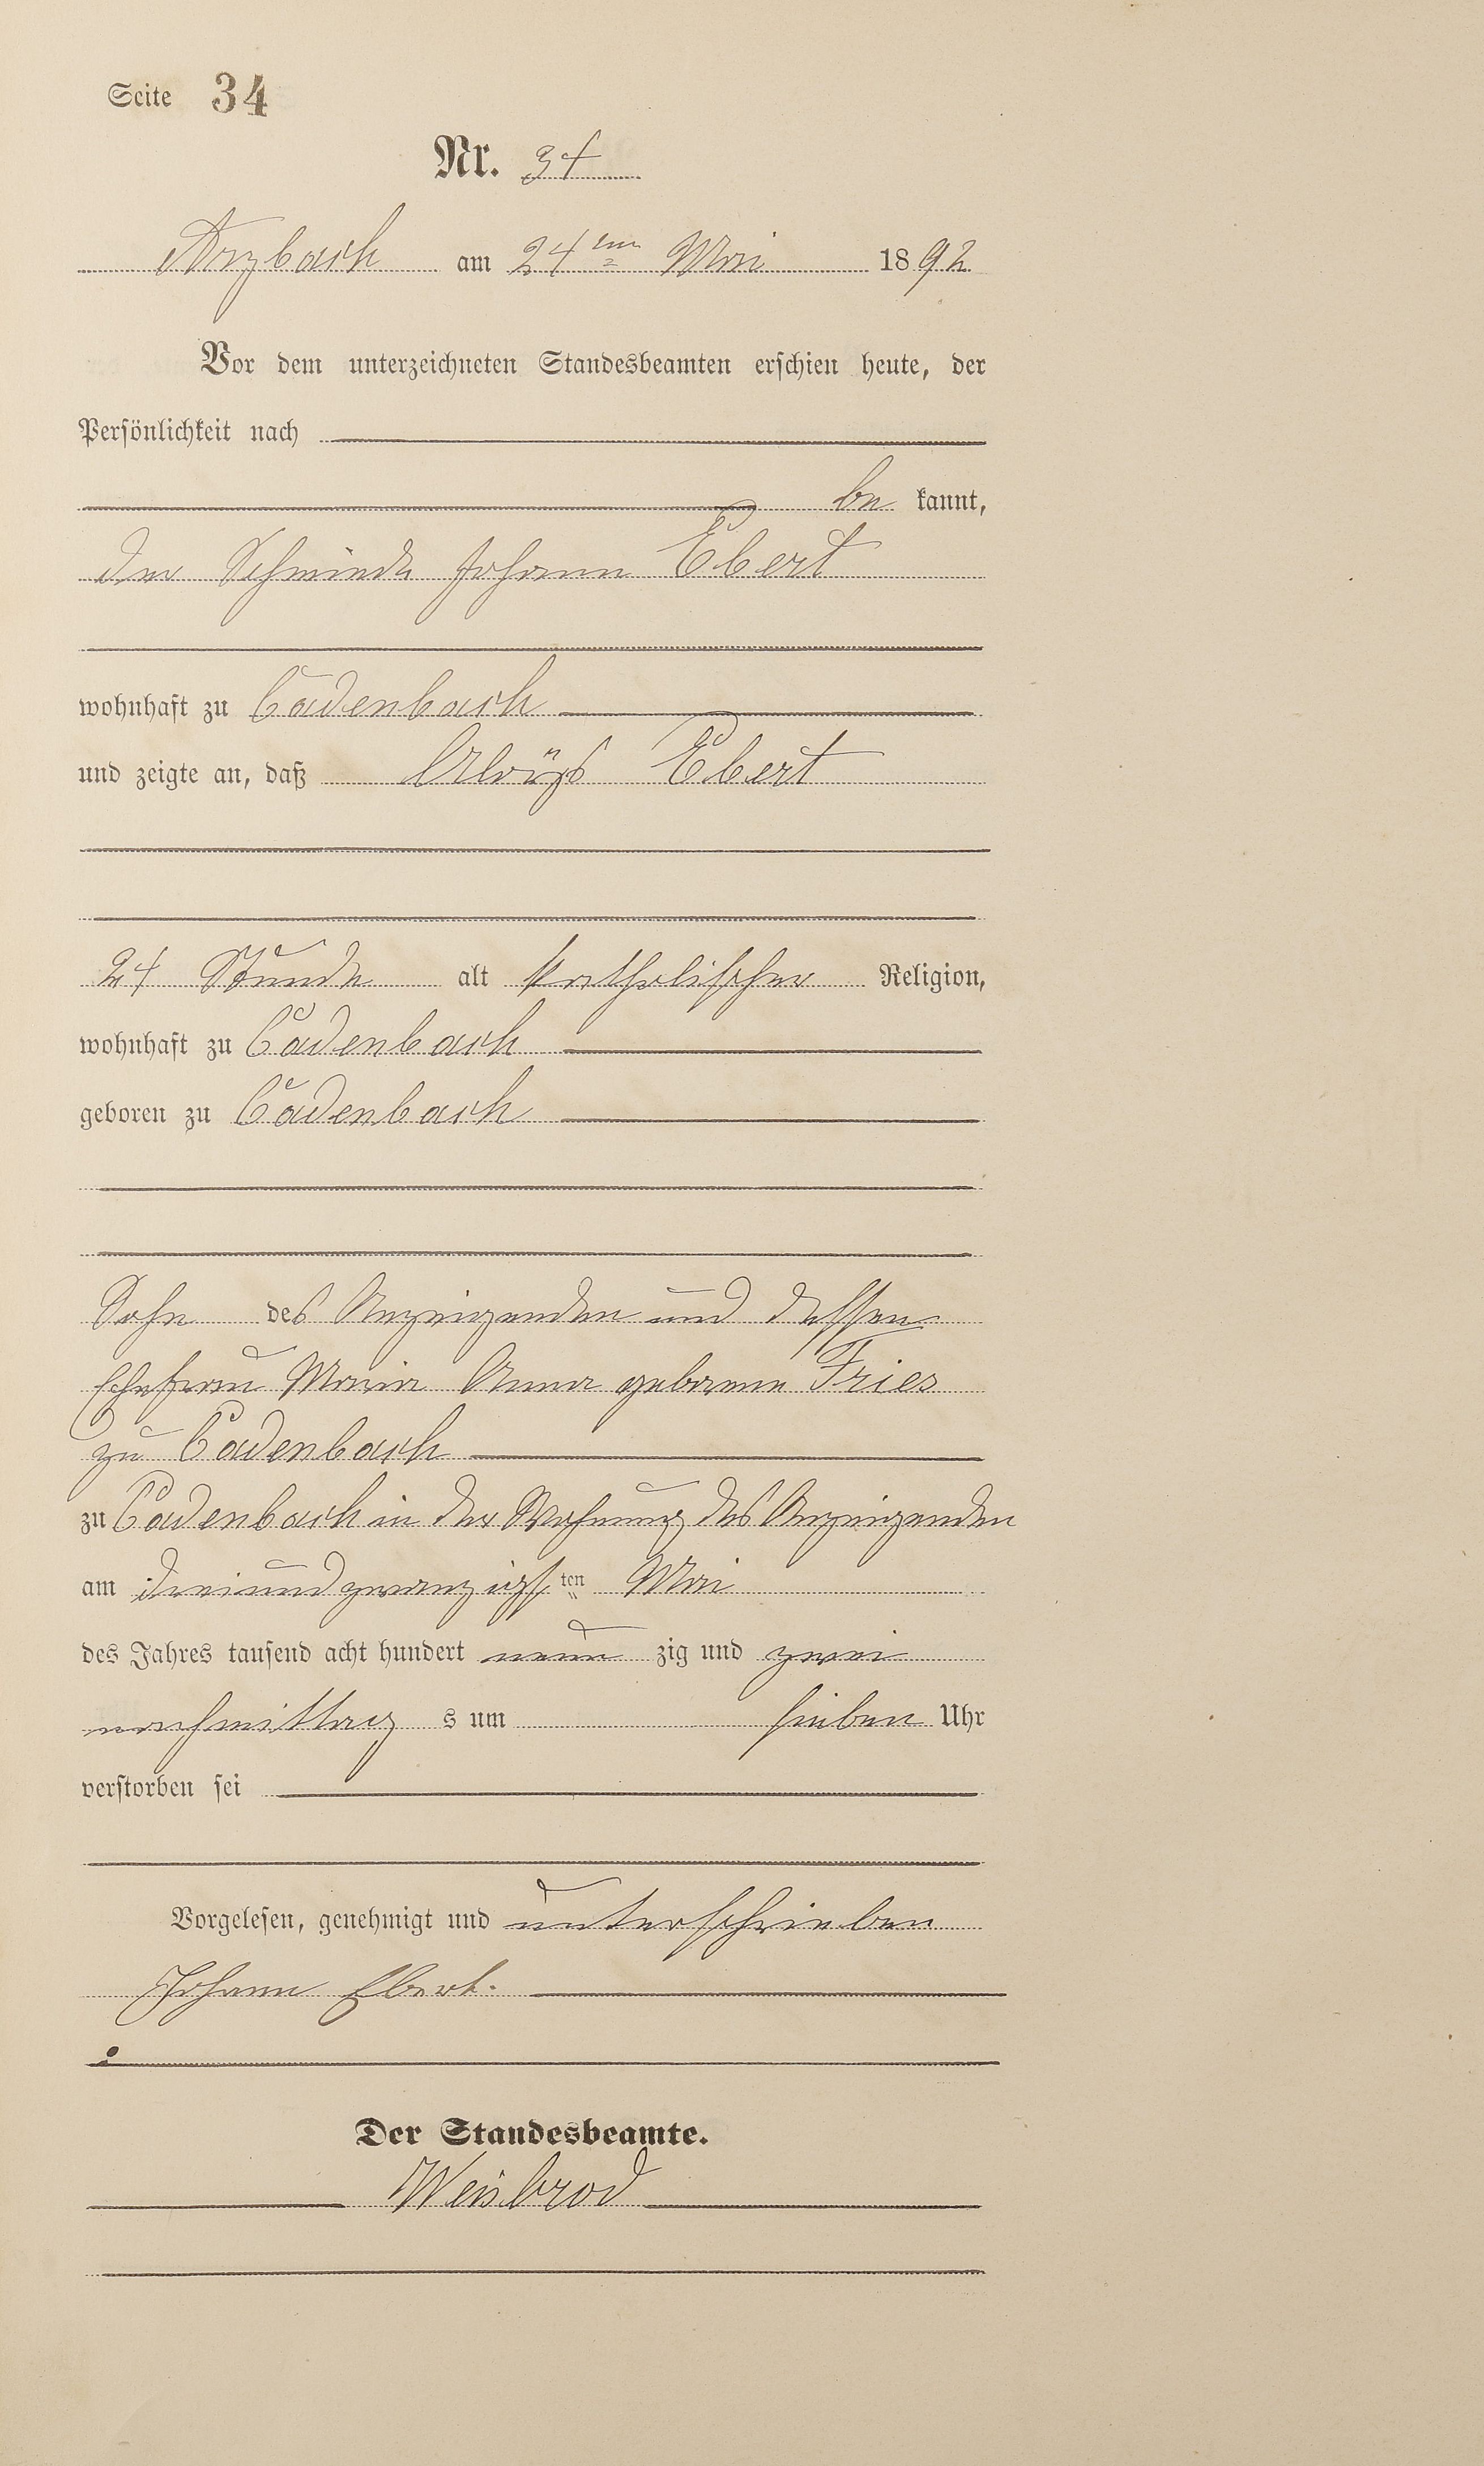 Seite 34
Nr. 34
Arzbach am 24ten Mai 1892
Vor dem unterzeichneten Standesbeamten erschien heute, der
Persönlichkeit nach
be kannt,
der Schmiede Johann Ebert
wohnhaft zu Cadenbach
und zeigte an, daß Aloÿs Ebert
24 Stunde alt katholischer Religion,
wohnhaft zu Cadenbach
geboren zu Cadenbach
Sohn des Anzeigenden und dessen
Ehefrau Maria Anna geborene Fries
zu Cadenbach
zu Cadenbach in der Wohnung des Anzeigenden
am dreiundzwanzigsten Mai
des Jahres tausend acht hundert neun zig und zwei
nachmittag s um sieben Uhr
verstorben sei
Vorgelesen, genehmigt und unterschrieben
Johann Ebert.
Der Standesbeamte.
Weisbrod